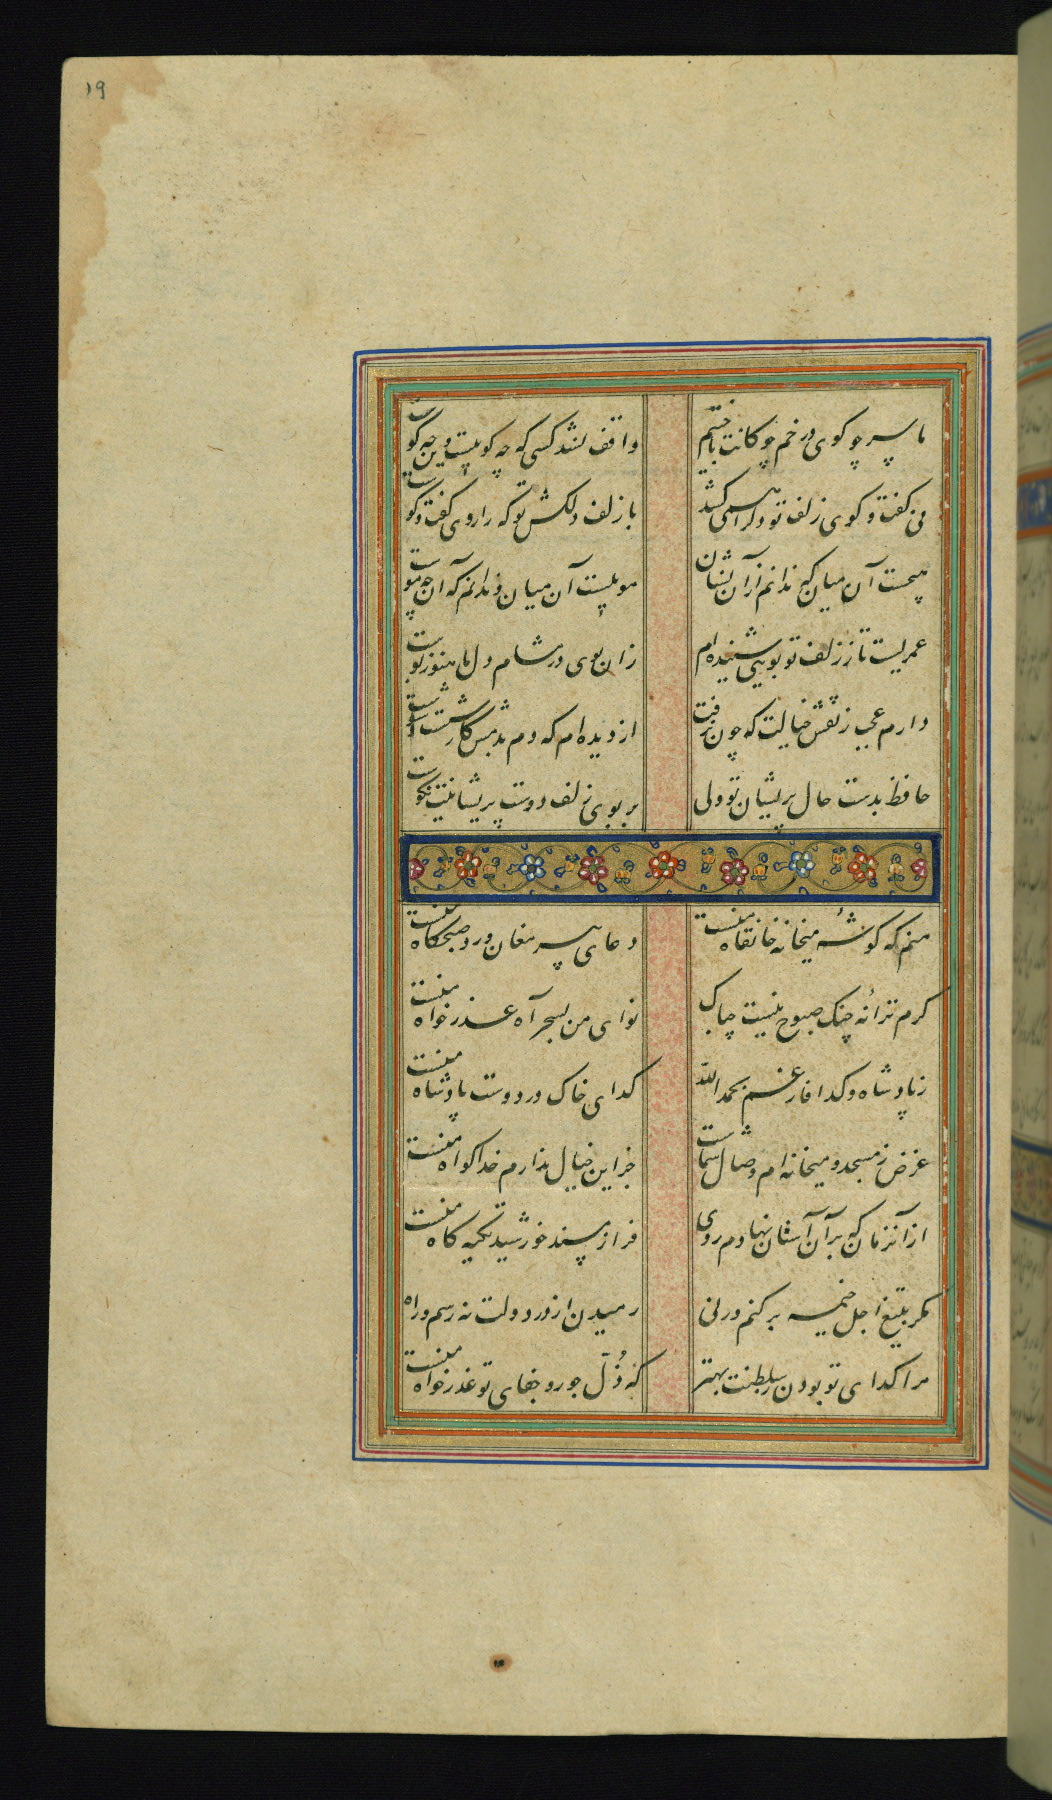 ۱۹
ما سر چو کوی در خم چوکانت باختیم واقف نشد کسی که چه کویست وین چه کوست
بی کفت و کوی زلف تو دل را همی کشد با زلف دلکش تو که را روی کفت و کوست
هیچست آن میان که ندانم از آن نشان مویست آن میان و ندانم که آن چه موست
عمریست تا ز زلف تو بویی شنیده ام زان بوی در مشام دل ما هنوز بوست
دارم عجب ز نقش خیالت که چون نرفت از دیده ام که دم بدمش کار شست و شوست
حافظ بدست حال پریشان تو ولی بر بوی زلف دوست پریشانیت نکوست
منم که کوشهٔ میخانه خانقاه منست دعای پیر مغان ورد صبحکاه منست
کرم ترانهٔ چنک صبوح نیست چه باک نوای من بسحر آه عذر خواه منست
ز پادشاه و کدا فارغم بحمد الله کدای خاک در دوست پادشاه منست
غرض ز مسجد و میخانه ام وصال شماست جز این خیال ندارم خدا کواه منست
از آنزمان که بر آن آستان نهادم روی فراز مسند خورشید تکیه کاه منست
مکر بتیغ اجل خیمه بر کنم ور نی رمیدن از در دولت نه رسم و راه منست
مرا کدای تو بودن ز سلطنت بهتر که ذُلّ جور و جفای تو عذر خواه منست